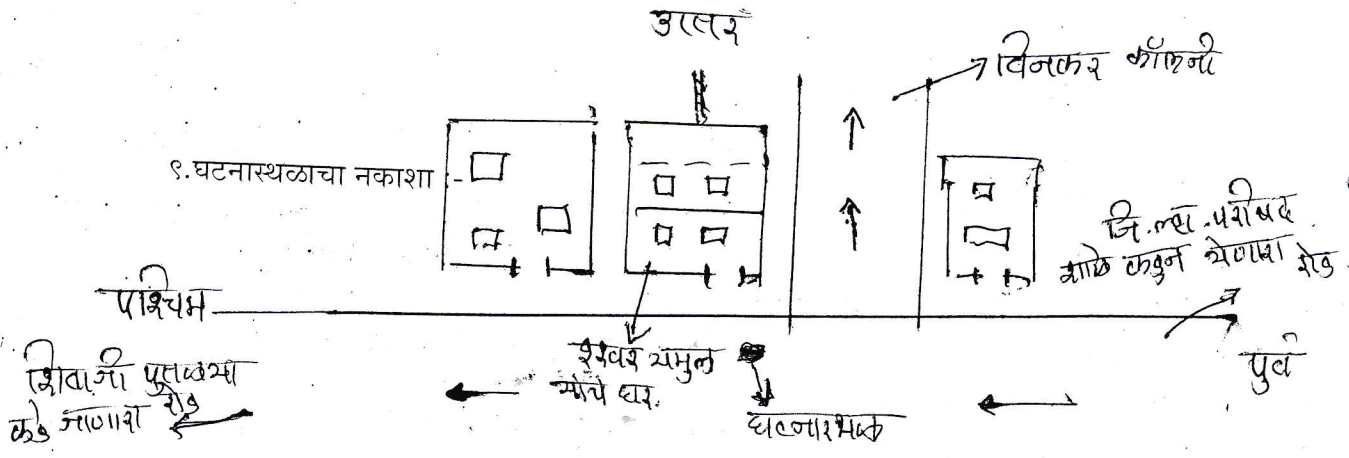 उत्तर
दिनकर कॉलनी
९.घटनास्थळाचा नकाशा
जि.ल्हा.परीषद
शाळे कडुन येणारा रोड
पश्चिम
पुर्व
शिवाजी पुतळ्या
कडे जाणारा रोड
ईश्वर यमुल
यांचे घर.
घटनास्थळ